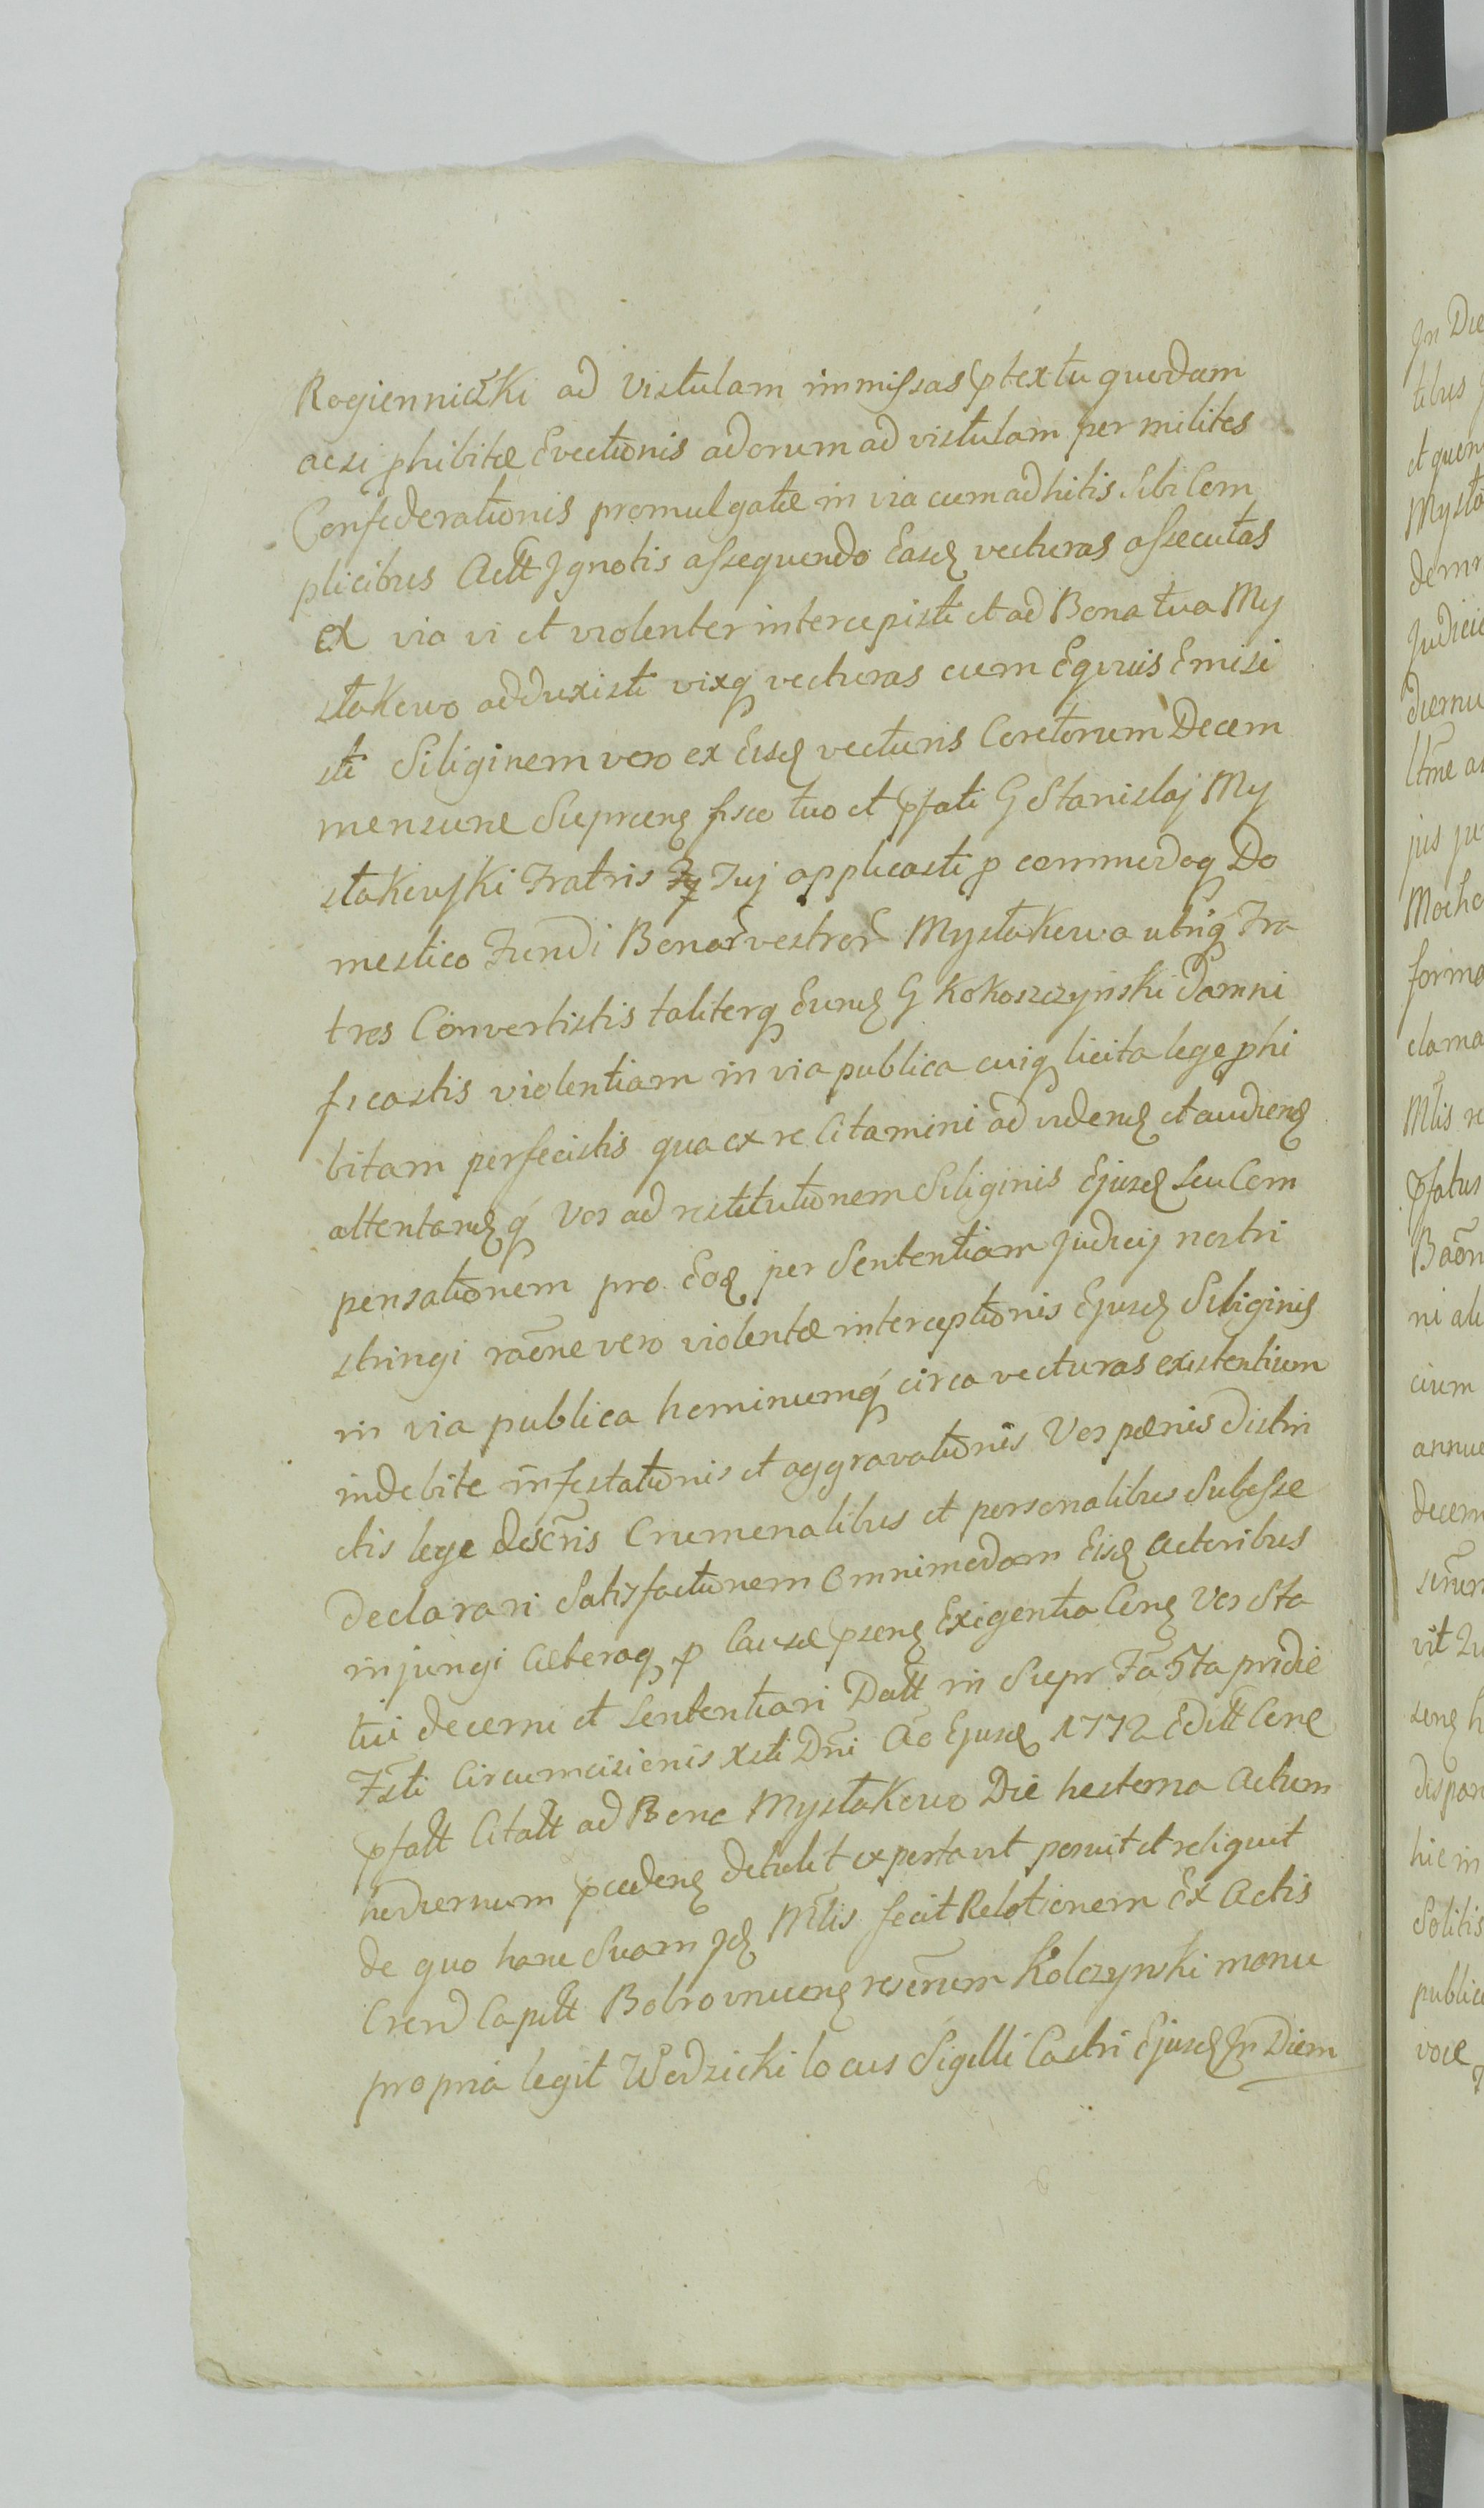 Rogienniczki ad Vistulam immissas ptextu quodam
acsi phibitæ Evectionis adorum ad vistulam per milites
Confederationis promulgatæ in via cum adhitis Sibi Com
plicibus Actt Jgnotis assequendo Easd vecturas assecutas
ex via vi et violenter intercepisti et ad Bona tua My
stakowo adduxisti vixq vecturas cum Equis Emisi
sti Siliginem vero ex Eisd vecturis Coretorum Decem
mensuræ Supraen fisco tuo et pfati G Stanislaj My
stakowski Fratris Tuj applicasti p commodoq Do
mestico Fundi Bonor vestror Mystakowa utriq Fra
tres Convertistis taliterq Eund G Kokoszczynski damni
ficastis violentiam in via publica cuiq licita lege phi
bitam perfecistis qua ex re Citamini ad vidend et audiend
attentandq Vos ad restitutionem Siliginis Ejusd seu Com
pensationem pro Eod per Sententiam Judicij nostri
stringi raone vero violentæ interceptionis Ejusd Siliginis
in via publica hominumq circa vecturas existentium
indebite infestationis et aggravationis Vos pænis distin
ctis lege descris Crumenalibus et personalibus Subesse
declarari Satisfactionem Omnimodam Eisd Actoribus
injungi Cæteraq p Causæ psen Exigentia Cen Vos Sta
tui decerni et Sententiari Datt in Supr Fa 5ta pridie
Fsti Circumcisionis Xsti Dni Ao Ejusd 1772 Editt Cene
pfatt Citatt ad Bona Mystakowo Die hesterna Actum
hodiernum pceden detulit exportavit posuit et reliquit
de quo hanc Suam Jd Mtlis fecit Relationem Ex Actis
Cren Capitt Bobrovnicen rescrum Kolczynski manu
propria legit Wodzicki locus Sigilli Castri Ejusd Jn Diem